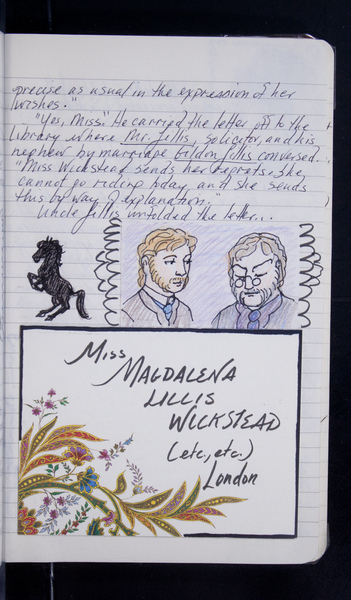 precise as usual in the expression of her
wishes."
"Yes, Miss." He carried the letter off to the
library where Mr. Lillis, solicitor, and his
nephew by marriage Gildon Lillis conversed.
"Miss Wickstead sends her regrets. She
cannot go riding today, and she sends
this by way of explanation."
Uncle Lillis unfolded the letter...
Miss
MAGDALENA
LILLIS
WICKSTEAD
(etc., etc.)
London